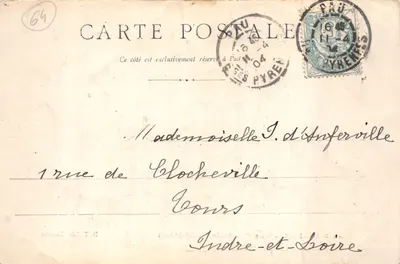 64
CARTE POSTALE
Ce côté est exclusivement réservé à
PAU
16
11 -4
04
PYRENEES
PAU
16
11 -4
PYRENEES
Mademoiselle J. d'Anferville
1 rue de Clocheville
Tours
Indre-et-Loire